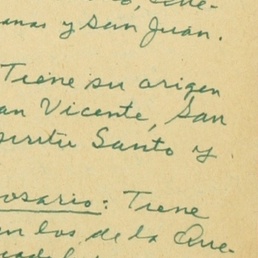 anas y San Juan.
Tiene su origen
an Vicente, San
píritu Santo y
osario: Tiene
en los de la Que-